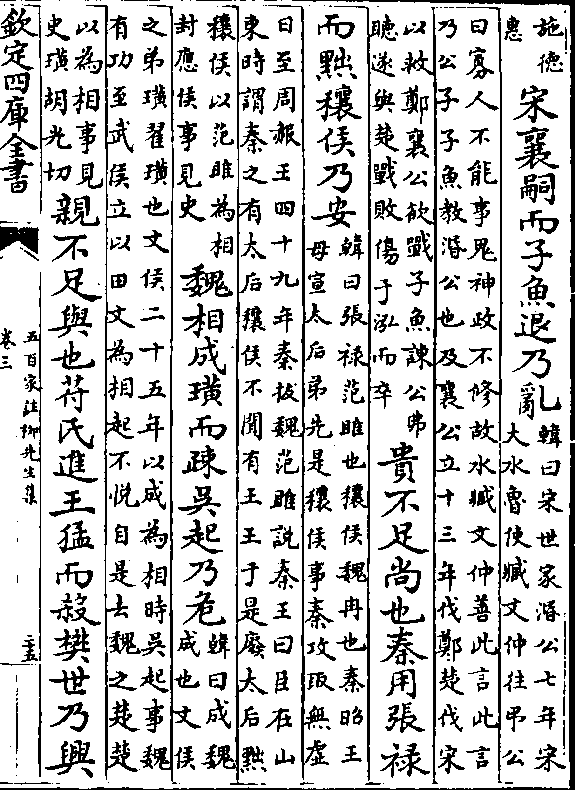 施德
惠
宋襄嗣而子魚退乃亂
韓曰宋世家湣公七年宋
大水魯使臧文仲往弔公
曰寡人不能事鬼神政不修故水臧文仲善此言此言
乃公子子魚教湣公也及襄公立十三年伐鄭楚伐宋
以救鄭襄公欲戰子魚諫公弗
聽遂與楚戰敗傷于泓而卒
貴不足尚也秦用張祿
而黜穰侯乃安
韓曰張祿范雎也穰侯魏冉也秦昭王
母宣太后弟先是穰侯事秦攻取無虛
日至周赧王四十九年秦拔魏范雎說秦王曰臣在山
東時謂秦之有太后穰侯不聞有王王于是廢太后黜
穰侯以范雎為相
封應侯事見史
魏相成璜而疎吳起乃危
韓曰成魏
成也文侯
之弟璜翟璜也文侯二十五年以成為相時吳起事魏
有功至武侯立以田文為相起不悅自是去魏之楚楚
以為相事見
史璜胡光切
親不足與也苻氏進王猛而殺樊世乃興
欽定四庫全書
五百家註柳先生集
卷三
二五